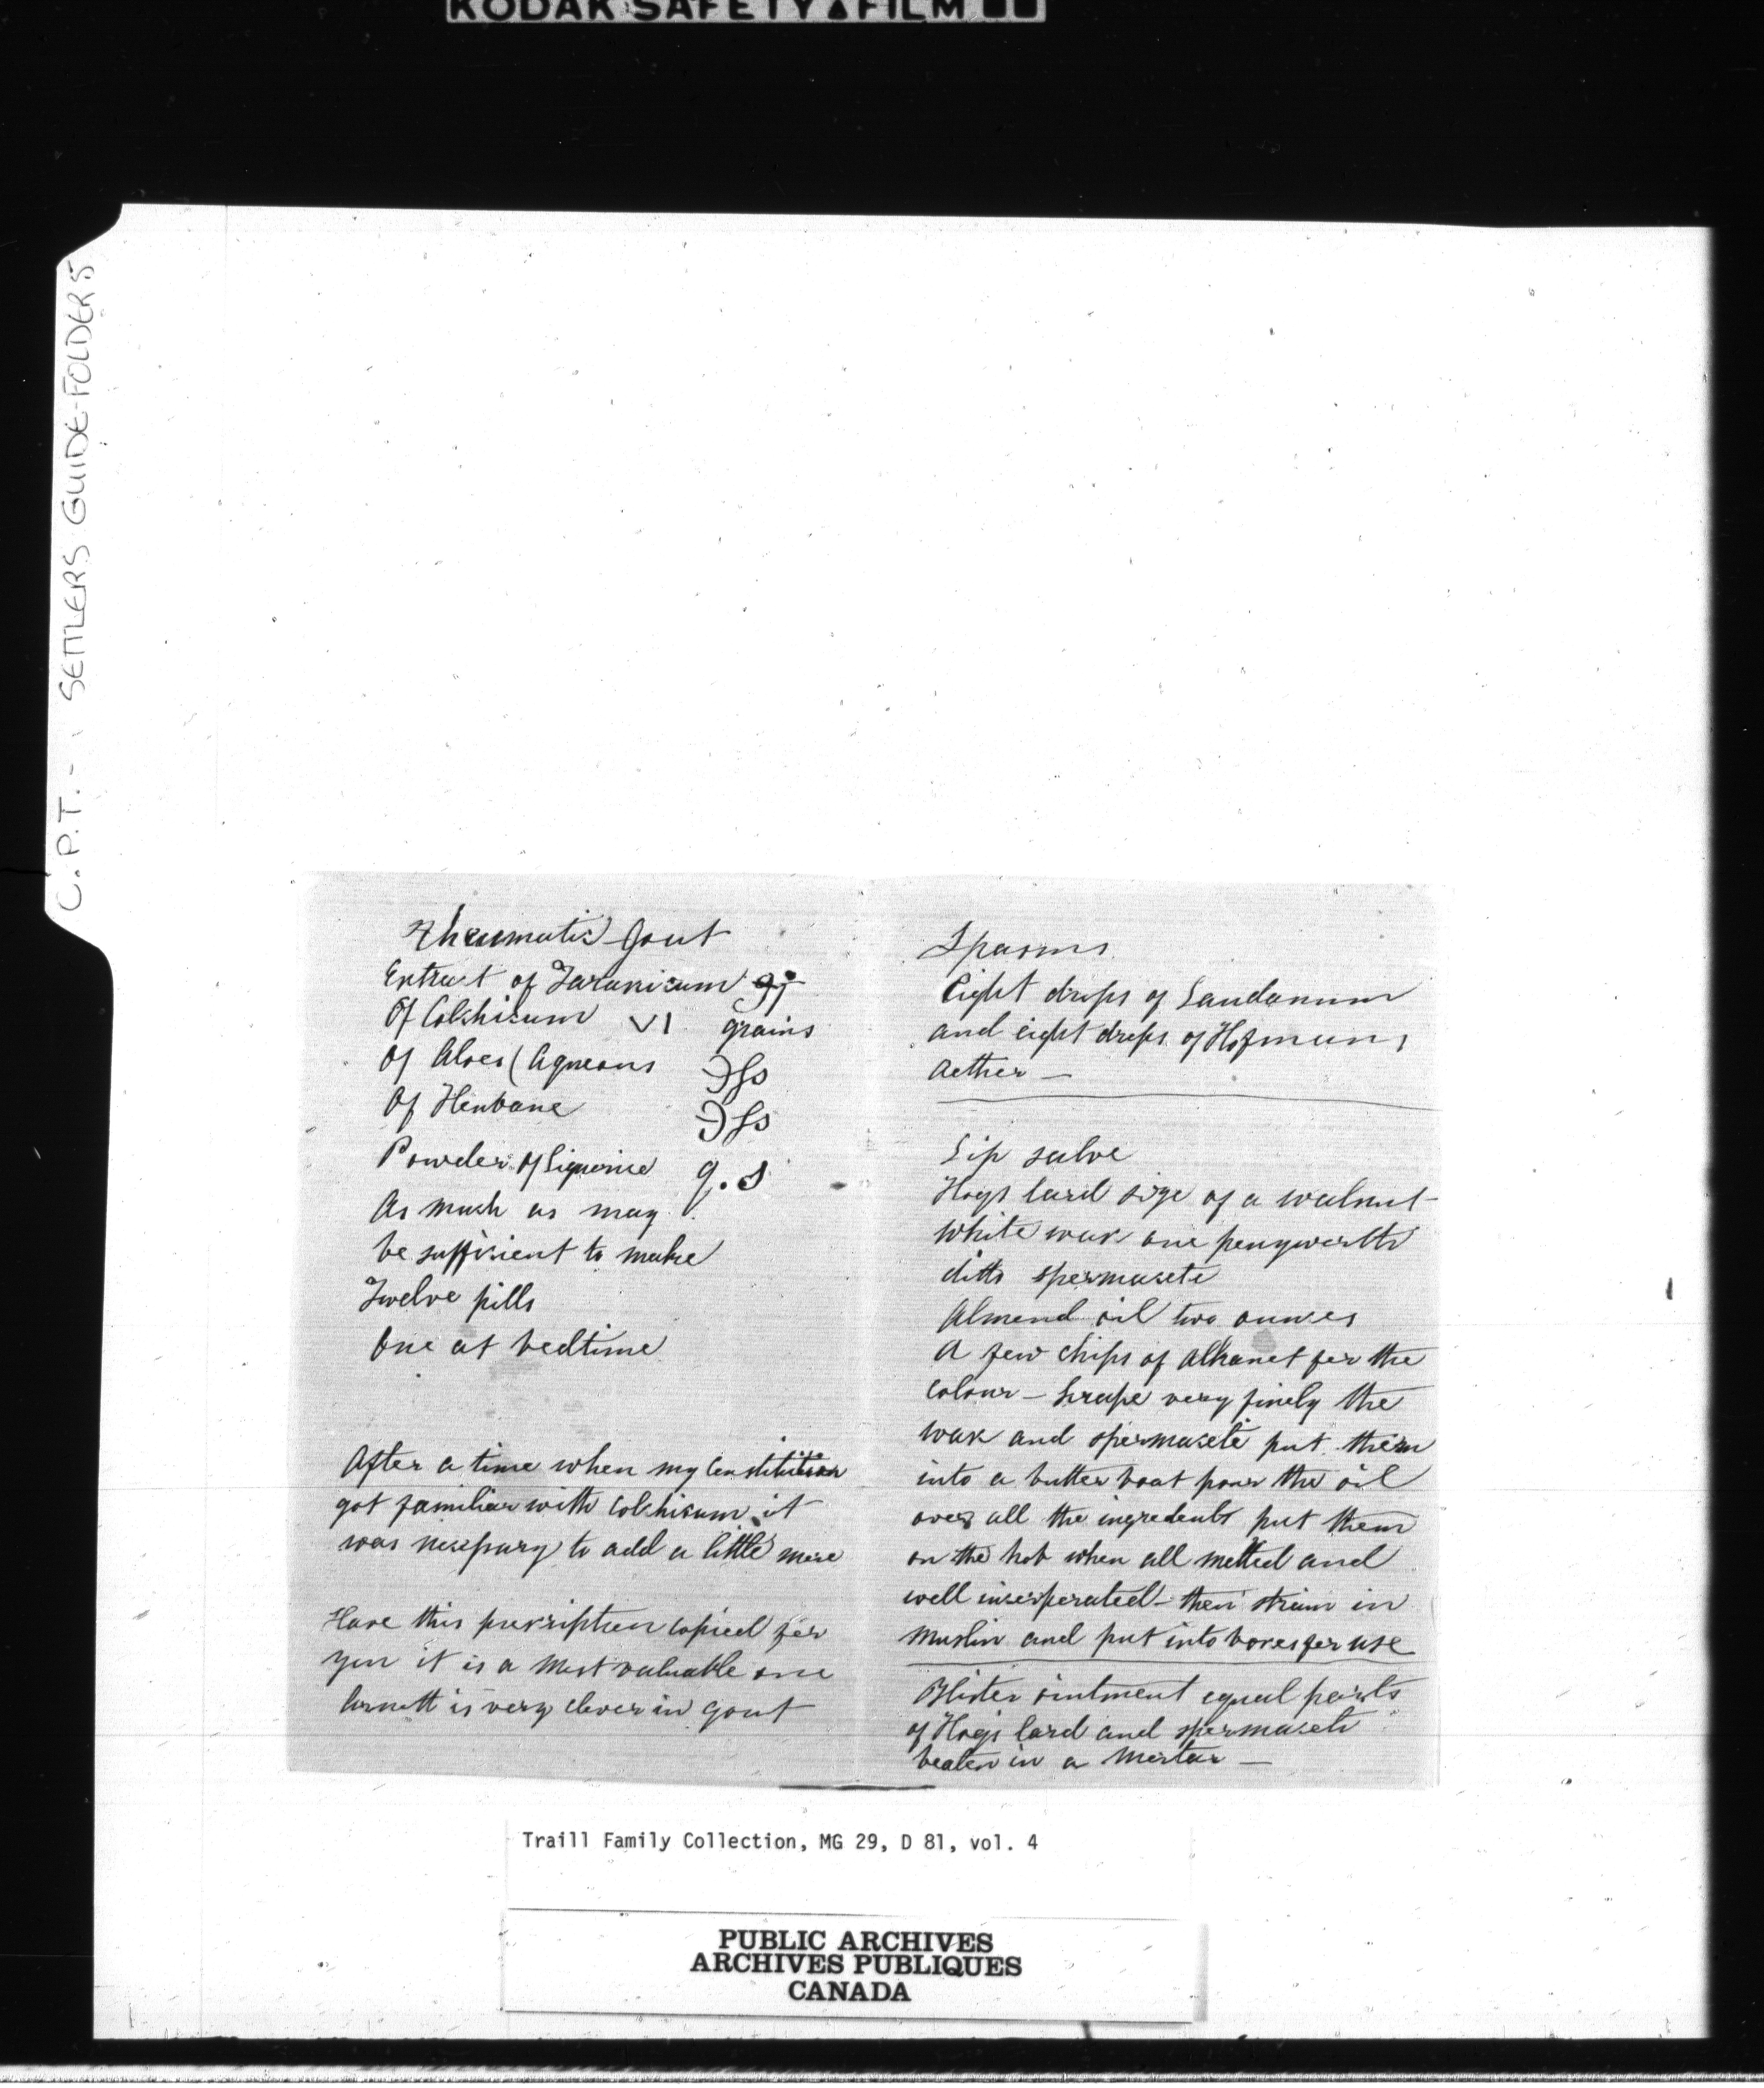 KODAK SAFETY FILM
C.P.T. - SETTLERS GUIDE-FOLDER 5
Rheumatic Gout
Extract of Taraxicum ʒj
Of Colchicum VI grains
Of Aloes (Aqueous ℈fs
Of Henbane ℈fs
Powder of Liquorice q.s
As much as may
be sufficient to make
Twelve pills
One at bedtime
After a time when my Constitution
got familiar with Colchicum it
was nesessary to add a little more
Have this prescription copied for
you it is a most valuable one
is very clever in gout
Spasms
Eight drops of Laudanum
and eight drops of Hofmans
Aether —
Lip salve
Hogs lard size of a walnut
White wax one penyworth
ditto spermaseti
Almond oil two ounces
A few chips of Alkanet for the
colour — Scrape very finely the
wax and spermaseti put them
into a butter boat pour the oil
over all the ingredents put them
on the hob when all melted and
well incorperated — then strain in
Muslin and put into boxes for use
Blister ointment equal parts
of Hogs lard and spermaseti
beaten in a Mortar —
Traill Family Collection, MG 29, D 81, vol. 4
PUBLIC ARCHIVES
ARCHIVES PUBLIQUES
CANADA